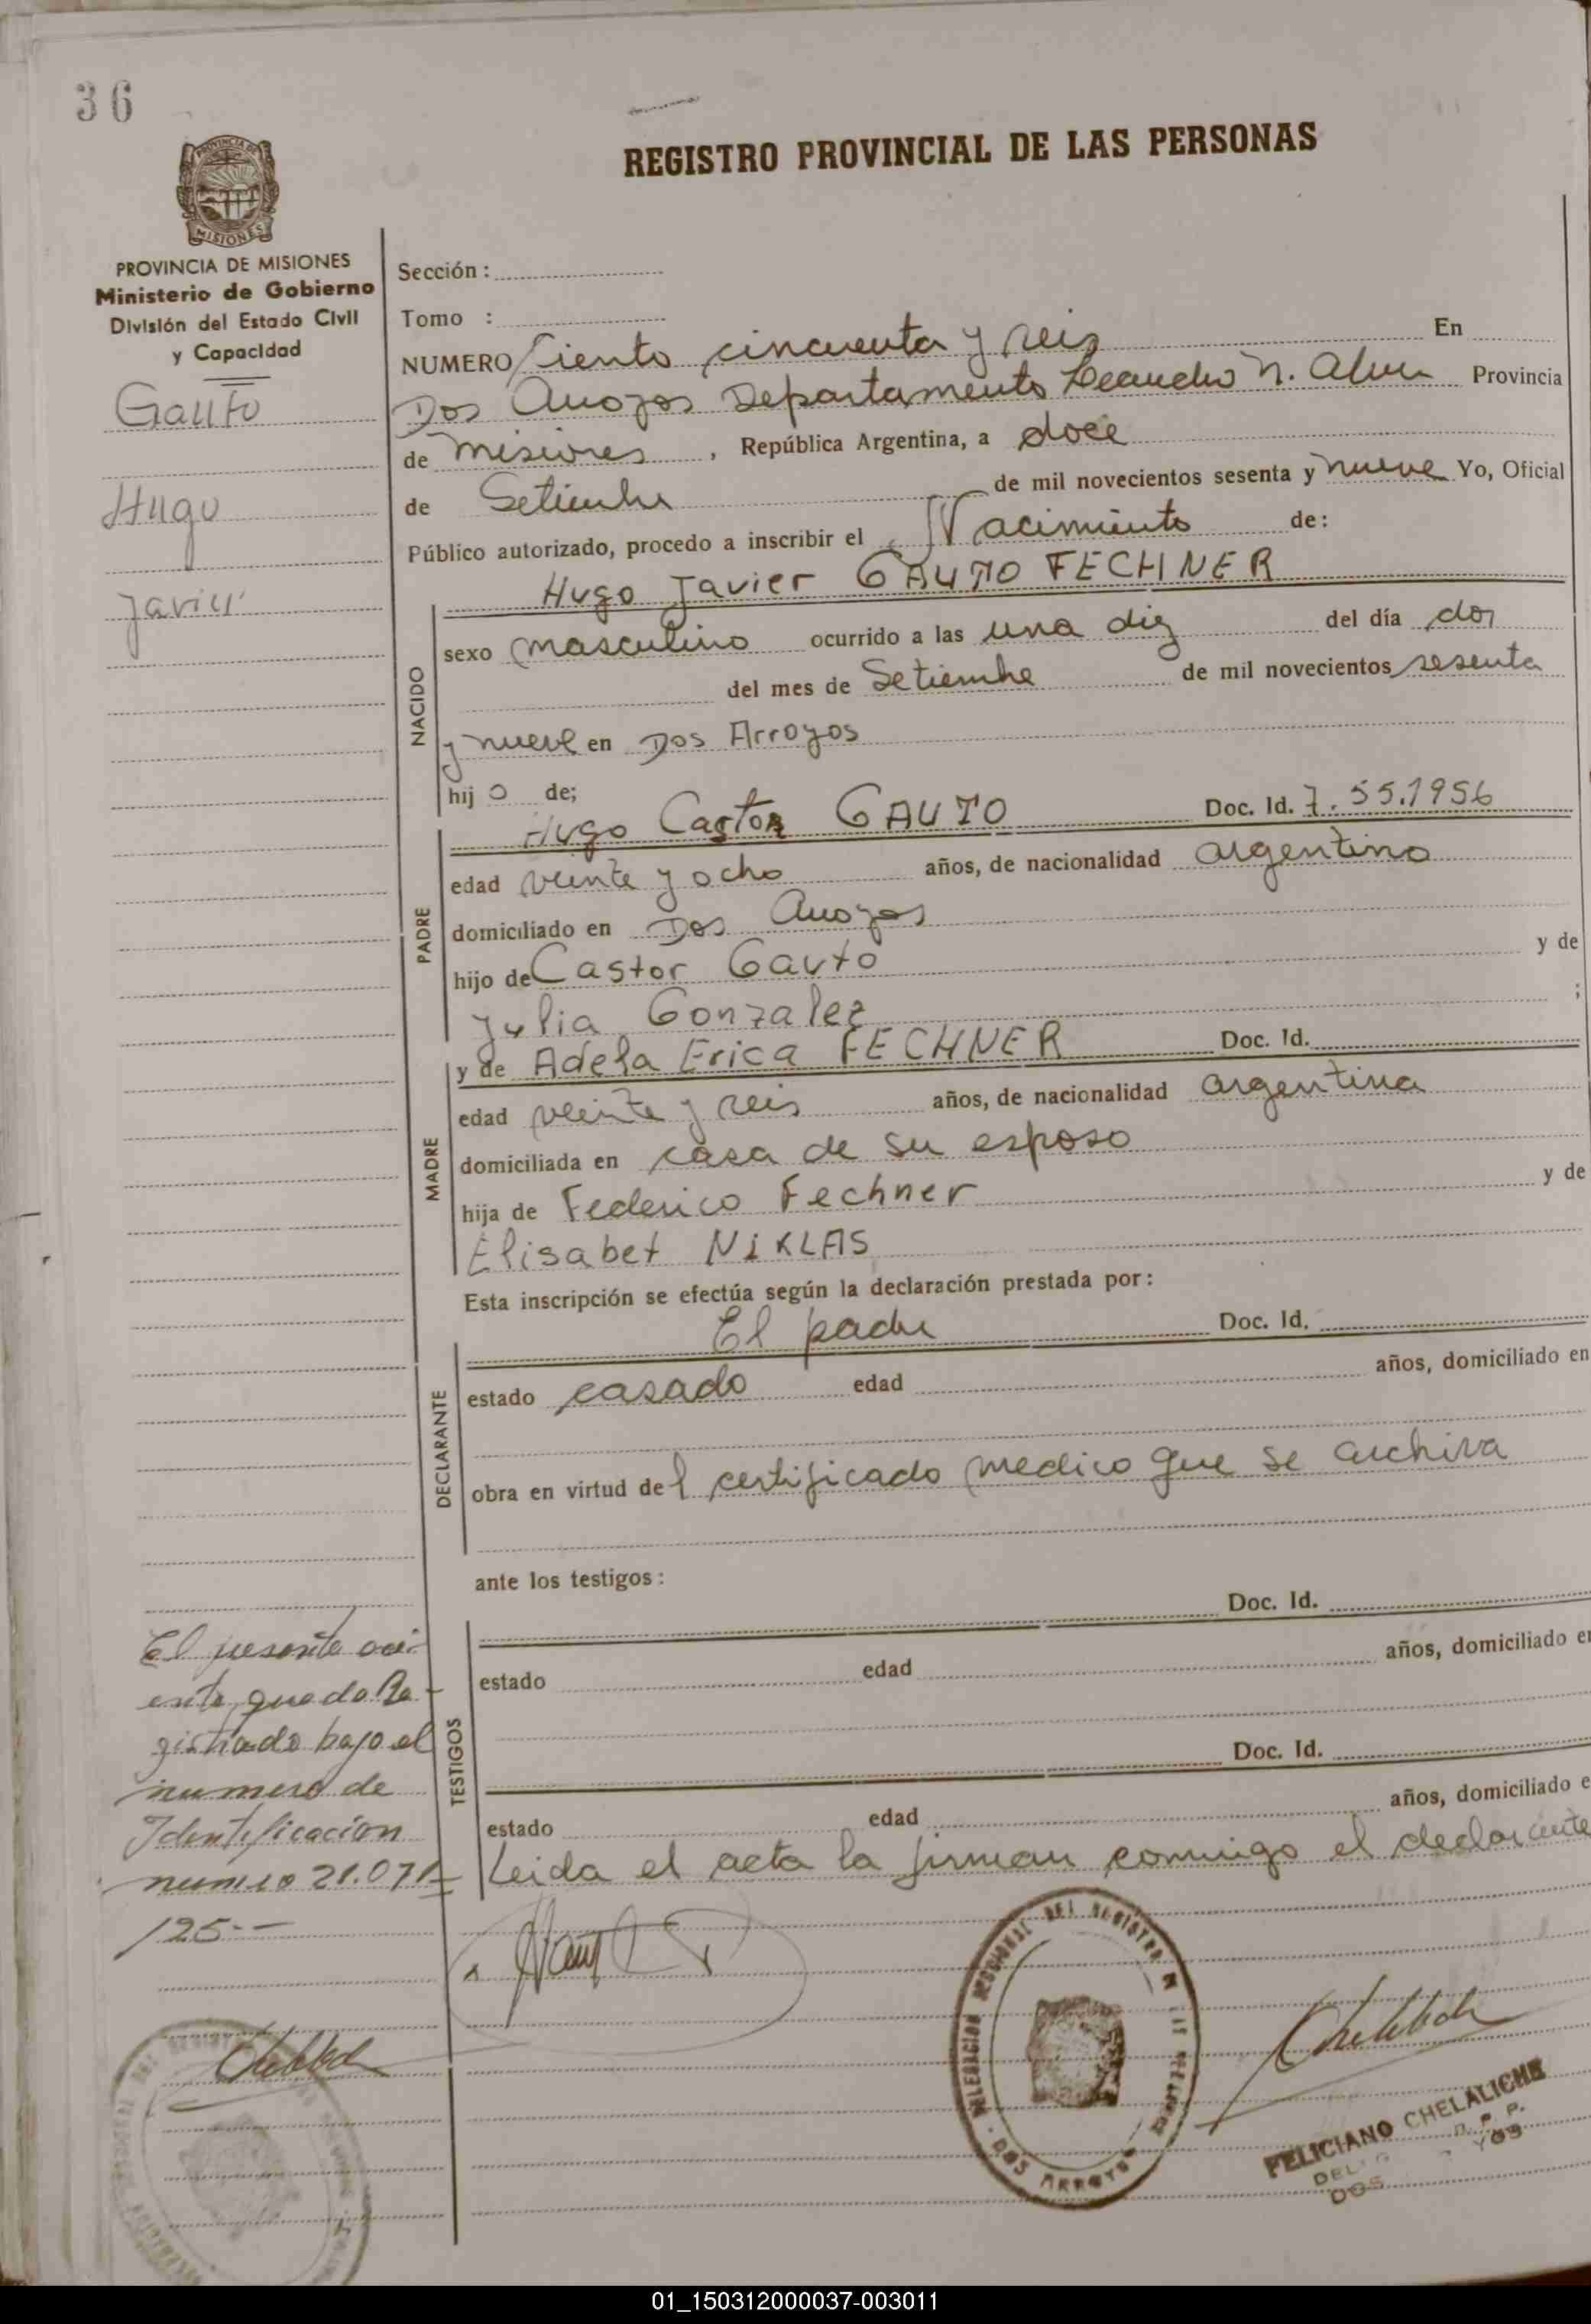 36
REGISTRO PROVINCIAL DE LAS PERSONAS
PROVINCIA DE MISIONES
MISIONES
PROVINCIA DE MISIONES
Ministerio de Gobierno
División del Estado Civil
y Capacidad
Gauto
Hugo
Javier
Sección :
Tomo :
NUMERO Ciento cincuenta y seis En
Dos Arroyos Departamento Leandro N. Alem Provincia
de Misiones , República Argentina, a doce
de Setiembre de mil novecientos sesenta y nueve Yo, Oficial
Público autorizado, procedo a inscribir el Nacimiento de:
Hugo Javier GAUTO FECHNER
NACIDO
sexo masculino ocurrido a las una diez del día dos
del mes de Setiembre de mil novecientos sesenta
y nueve en Dos Arroyos
hij o de;
PADRE
Hugo Castor GAUTO Doc. Id. 7.55.1956
edad veinte y ocho años, de nacionalidad argentino
domiciliado en Dos Arroyos
hijo de Castor Gauto y de
Julia Gonzalez ;
MADRE
y de Adela Erica FECHNER Doc. Id.
edad veinte y seis años, de nacionalidad argentina
domiciliada en casa de su esposo
hija de Federico Fechner y de
Elisabet NIKLAS
Esta inscripción se efectúa según la declaración prestada por:
DECLARANTE
El padre Doc. Id.
estado casado edad años, domiciliado en
obra en virtud del certificado medico que se archiva
ante los testigos:
TESTIGOS
Doc. Id.
estado edad años, domiciliado en
Doc. Id.
estado edad años, domiciliado e
Leida el acta la firman conmigo el declarante
El presente naci-
ento queda Re-
gistrado bajo el
numero de
Identificacion
numero 21.071
125--
DELEGACION SECCIONAL DEL REGISTRO DE LAS PERSONAS
DOS ARROYOS
FELICIANO CHELALICHE
DOS
01_150312000037-003011